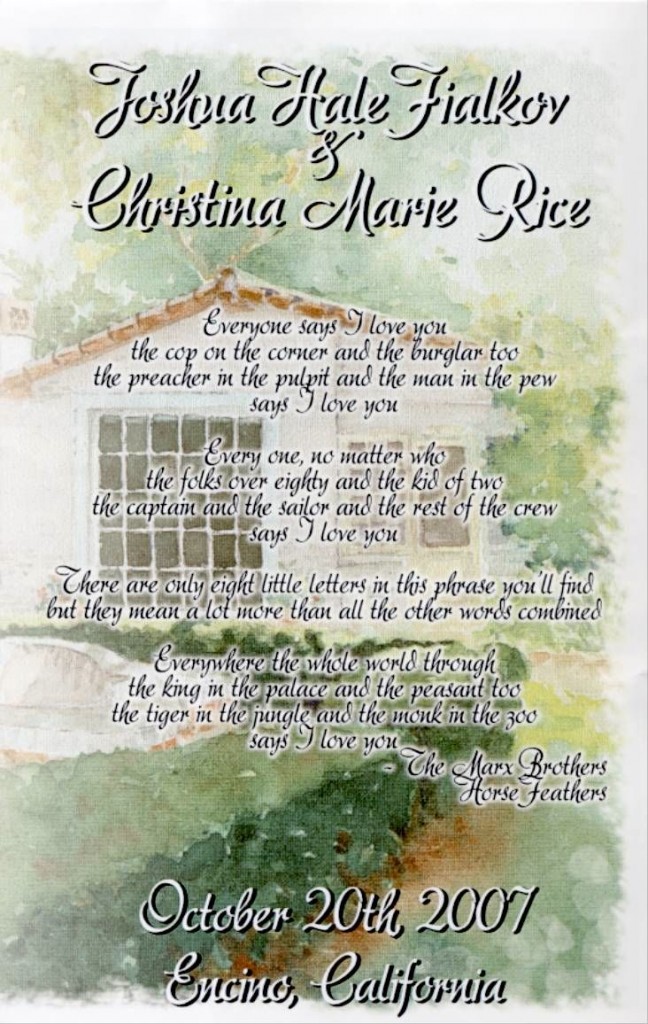 Joshua Hale Fialkov
&
Christina Marie Rice
Everyone says I love you
the cop on the corner and the burglar too
the preacher in the pulpit and the man in the pew
says I love you
Every one, no matter who
the folks over eighty and the kid of two
the captain and the sailor and the rest of the crew
says I love you
There are only eight little letters in this phrase you'll find
but they mean a lot more than all the other words combined
Everywhere the whole world through
the king in the palace and the peasant too
the tiger in the jungle and the monk in the zoo
says I love you
- The Marx Brothers
Horse Feathers
October 20th, 2007
Encino, California